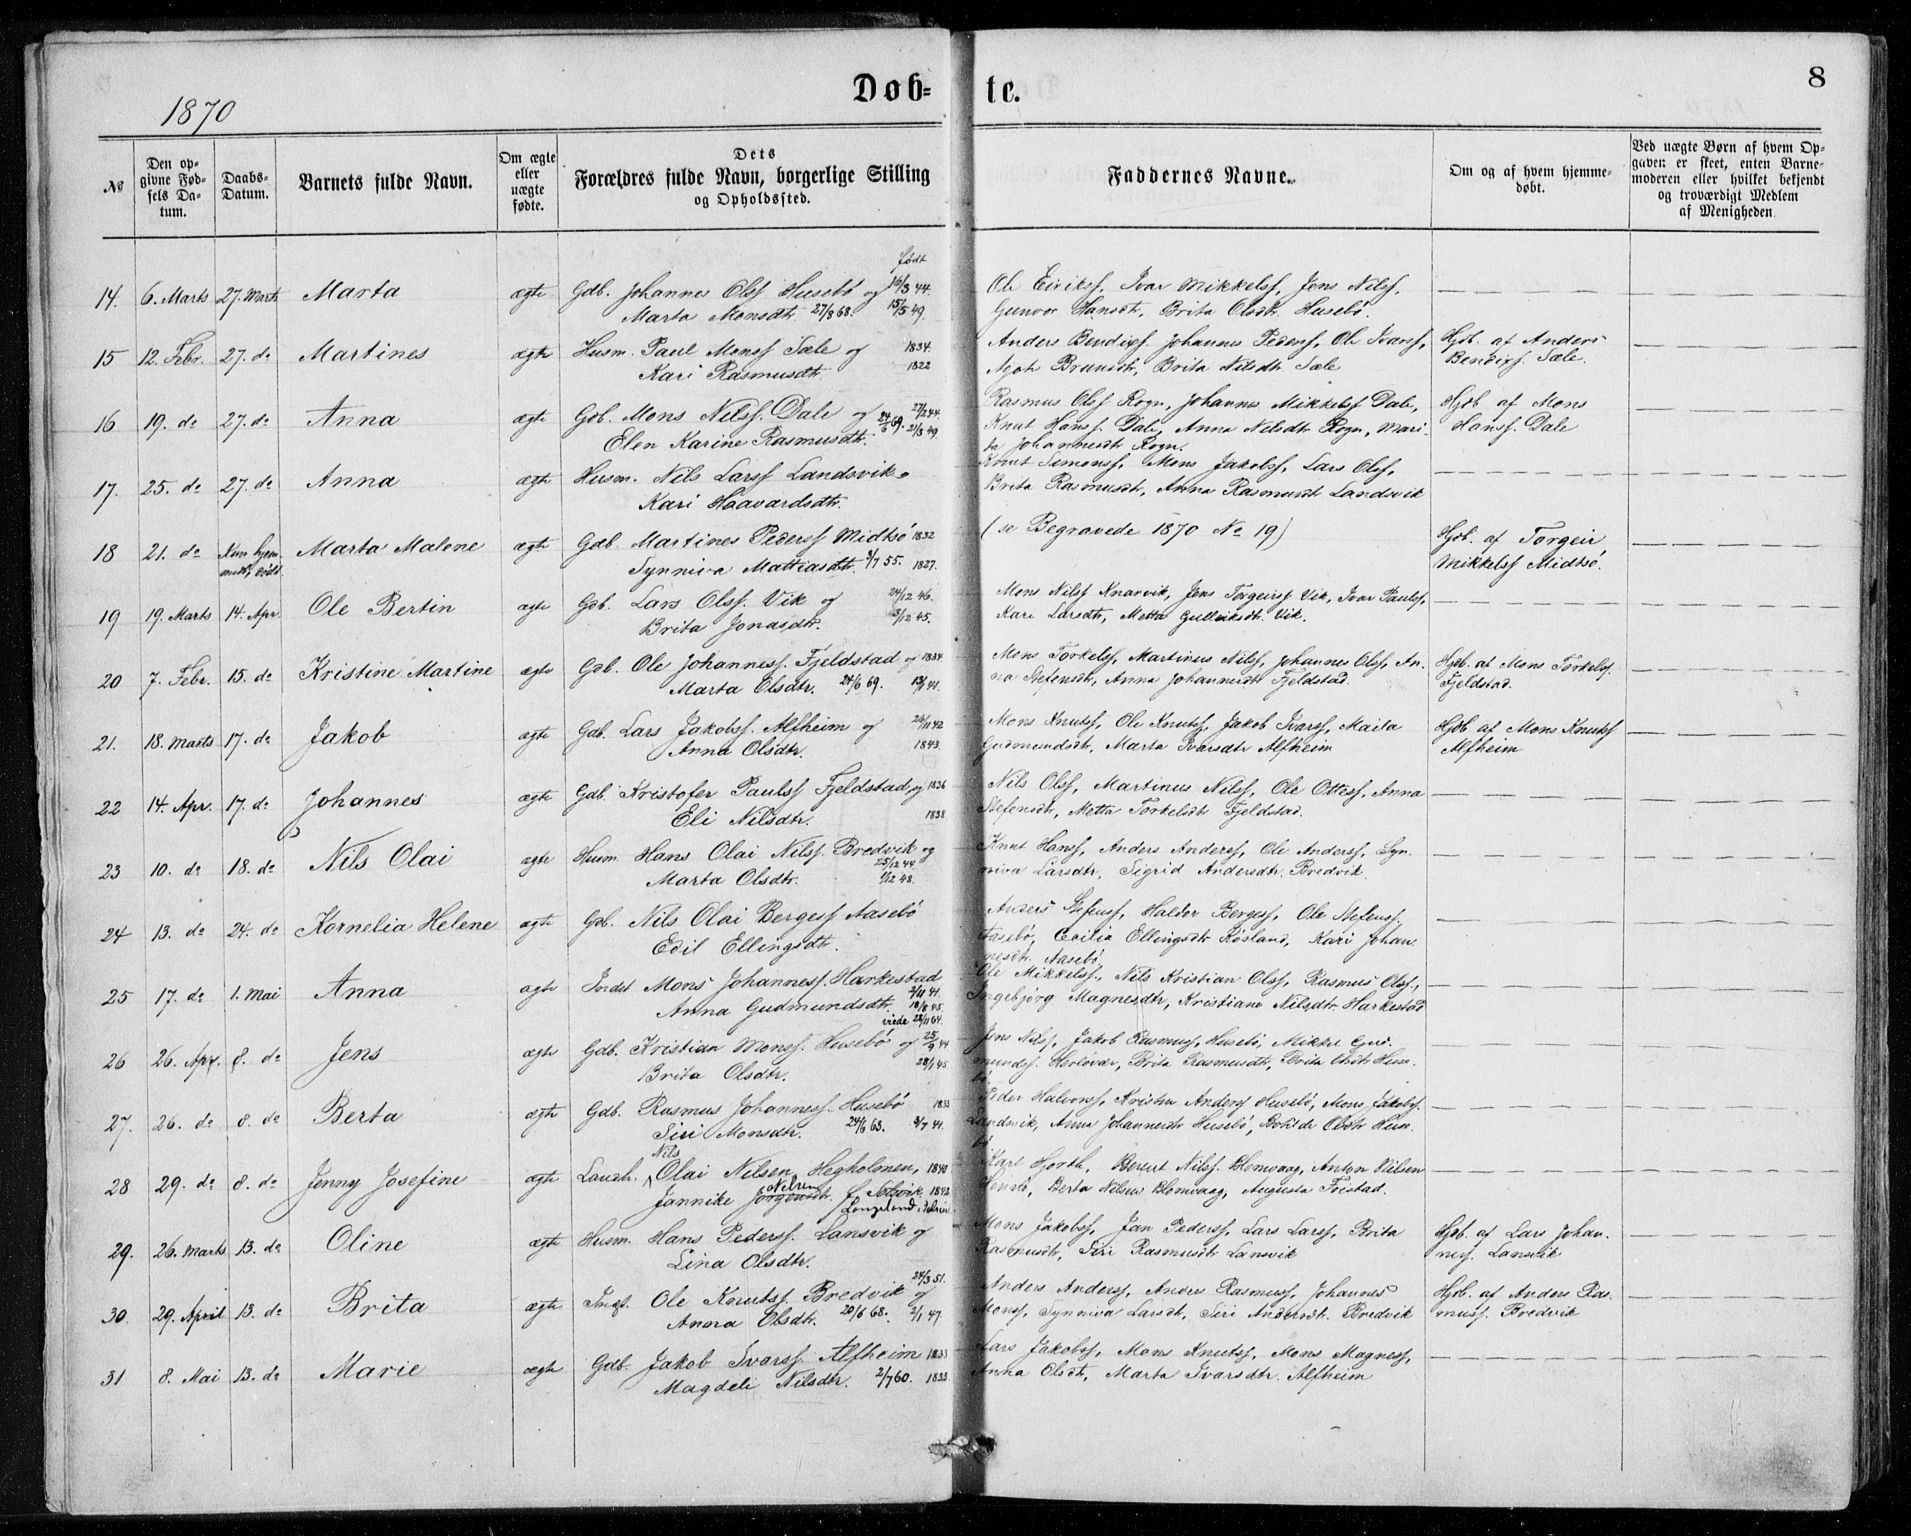 8
Døb= te.
1870
№
Den op-
givne Fød-
sels Da-
tum.
Daabs-
Datum.
Barnets fulde Navn.
Om ægte
eller
uægte
fødte.
Dets
Forældres fulde Navn, borgerlige Stilling
og Opholdssted.
Faddernes Navne.
Om og af hvem hjemme-
døbt.
Ved uægte Børn af hvem Op-
gaven er skeet, enten Barne-
moderen eller hvilket bekjendt
og troværdigt Medlem
af Menigheden.
født
14. 6. Marts 27. Marts Marta ægte Gdb. Johannes Olsf Husebø og 16/3 44. Ole Eiriksf, Ivar Mikkelsf, Jens Nilsf,
Marta Monsdtr. 27/8 68. 15/5 49. Gunvor Hansdtr, Brita Olsdtr Husebø.
15 12. Febr. 27. do Martines ægte Husm. Paul Monsf Sæle og 1834. Anders Bendigsf Johannes Pedersf, Ole Ivarsf, Hjdb. af Anders
Kari Rasmusdtr. 1822 Brita Nilsdtr Sæle Bendigsf. Sæle.
16 19. do 27. do Anna ægte Gdb. Mons Nilsf. Dale og 27/2 44. Rasmus Olsf Rogn, Johannes Mikkelsf Dale, Hjdb af Mons
Elen Karine Rasmusdtr. 24/6 69. 21/3 49. Knut Hansf. Dale, Anna Nilsdtr Rogn, Mari- Hansf. Dale
Johannesdtr Rogn.
17. 25. do 27. do Anna ægte Husm. Nils Larsf Landsvik Knut Simonsf, Mons Jakobsf, Lars Olsf,
Kari Haavardsdtr. Brita Rasmusdtr, Anna Rasmusdt Landsvik
18 21. do Kun hjem- Marta Malene ægte Gdb. Martines Pedersf Midtsø 1832 (se Begravede 1870 No 19) Hjdb. af Torgeir
Synniva Mattiasdtr. 3/7 55. 1827. Mikkelsf Midtsø.
19 19. Marts 14. Apr Ole Bertin ægte Gdb. Lars Olsf. Vik og 24/12 46. Mons Nilsf Knarvik, Jens Torgeirsf Vik, Ivar Paulsf,
Brita Jonasdtr. 3/12 45. Kari Larsdtr, Metta Gulleiksdtr. Vik.
20 7. Febr. 15. do Kristine Martine ægte Gdb. Ole Johannesf. Fjeldstad og 1834. Mons Torkelsf, Martinus Nilsf, Johannes Olsf, An- Hjdb. af Mons Torkelsf.
Marta Olsdtr. 24/6 69. na Stefensdtr, Anna Johannesdtr Fjeldstad. Fjeldstad.
21. 18. Marts 17. do Jakob ægte Gdb. Lars Jakobsf. Alfheim og 26/11 42 Mons Knutsf, Ole Knutsf, Jakob Ivarsf, Maila Hjdb af Mons Knutsf
Anna Olsdtr. 1843. Gudmundsdtr, Marta Ivarsdtr Alfheim Alfheim
22 14. Apr. 17. do Johannes ægte Gdb. Kristofer Paulsf Fjeldstad og 1836 Nils Olsf, Martinus Nilsf, Ole Ottesf, Anna
Eli Nilsdtr. 1838 Stefensdtr, Metta Torkelsdtr Fjeldstad.
23 10. do 18. do Nils Olai ægte Husm. Hans Olai Nilsf. Bredvik og Knut Hansf, Anders Andersf, Ole Andersf, Syn-
Marta Olsdtr. 25/12 44. 1/12 48. niva Larsdtr, Sigrid Andersdtr. Bredvik.
24 13. do 24. do Kornelia Helene ægte Gdb. Nils Olai Bergesf Aasebø Anders Stefensf, Halder Bergesf, Ole Stefensf.
Edil Ellingsdtr. Aasebø, Cecilia Ellingsdtr Røsland, Kari Johan-
nesdtr. Aasebø.
25 17. do 1. Mai Anna ægte Indst Mons Johannesf. Harkestad Ole Mikkelsf., Nils Kristian Olsf, Rasmus Olsf.,
Anna Gudmundsdtr. 2/11 41. 18/8 45. Ingebjørg Magnesdtr, Kristiane Nilsdtr. Harkestad
viede 28/11 64.
26 26. Apr. 8. do Jens ægte Gdb. Kristian Monsf. Husebø og 25/9 44 Jens Nilsf, Jakob Rasmusf, Husebø, Mikkel Gud-
Brita Olsdtr. 28/1 45 mundsf. Herløvær, Brita Rasmusdtr, Brita Olsdtr Huse-
bø.
27. 26. do 8. do Berta ægte Gdb. Rasmus Johannesf. Husebø 1833 Peder Halvorsf, Kristen Andersf Husebø, Mons Jakobsf.
Siri Monsdtr. 24/6 63. 3/7 41. Landsvik, Anna Johannesdtr Husebø, Bothilde Olsdtr Huse-
bø
28 29. do 8. do Jenny Josefine ægte Landh. Nils Olai Nilsen, Hegholmen, 1840 Karl Hjorth, Berent Nilsf. Blomvaag, Anton Nilsen
Jannike Nilsen Jørgensdt. f. Solvik 1842 Berta Nilsen Blomvaag, Augusta Fristad.
29. 26. Marts 13. do Oline ægte Husm. Hans Pedersf. Lansvik og Mons Jakobsf, Jan Pedersf, Lars Larsf, Brita Hjdb. af Lars Johan-
Lina Olsdtr. Rasmusdt, Siri Rasmusdtr Lansvik nesf. Lansvik
30. 29. April 13. do Brita ægte Ole Knutsf Bredvik og 24/3 51. Anders Andersf, Anders Rasmusf, Johannes Hjdb. af Anders Ras-
Anna Olsdtr. 20/6 68. 2/1 47. Monsf, Synniva Larsdt, Siri Andersdt. Bredvik musf. Bredvik
31 8. Mai 13. do Marie ægte Gdb. Jakob Ivarsf. Alfheim 1833 Lars Jakobsf, Mons Knutsf, Mons Magnesf,
Magdeli Nilsdtr. 2/7 60. 1833 Anna Olsdt, Marta Ivarsdtr. Alfheim